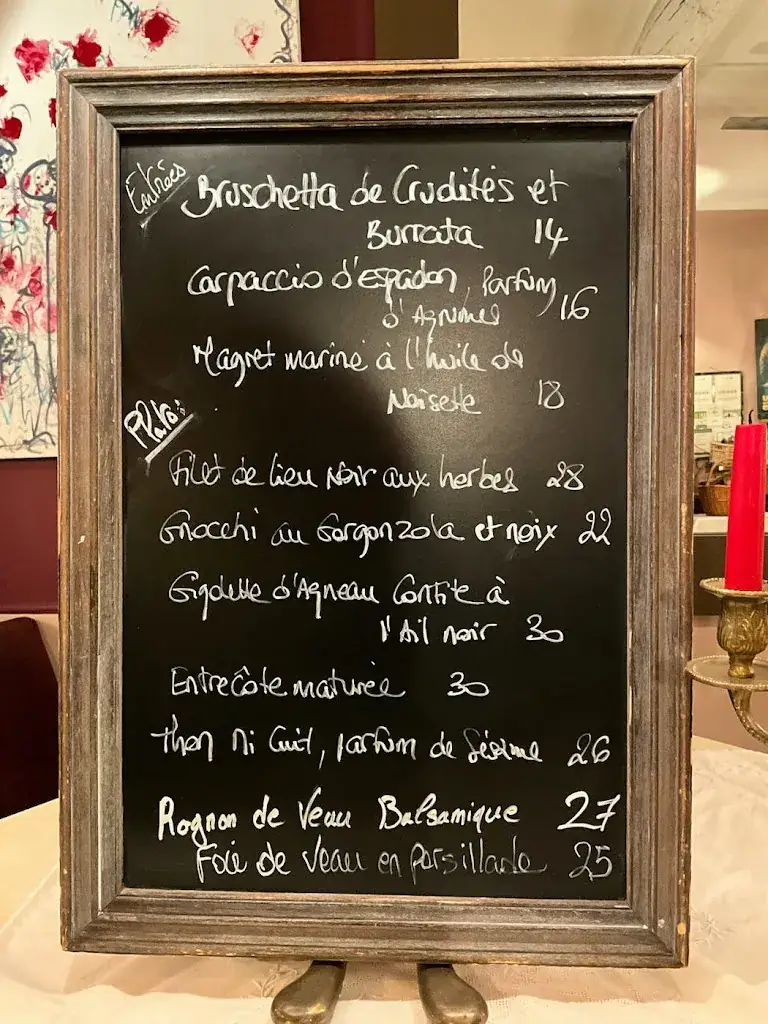 Entrées
Bruschetta de Crudités et
Burrata 14
Carpaccio d'espadon, Parfum
d'Agrumes 16
Magret mariné à l'huile de
Noisette 18
Plats:
Filet de lieu Noir aux herbes 28
Gnocchi au Gorgonzola et noix 22
Gigolette d'Agneau Confite à
l'Ail noir 30
Entrecôte maturée 30
thon Mi Cuit, parfum de Sésame 26
Rognon de Veau Balsamique 27
Foie de Veau en persillade 25